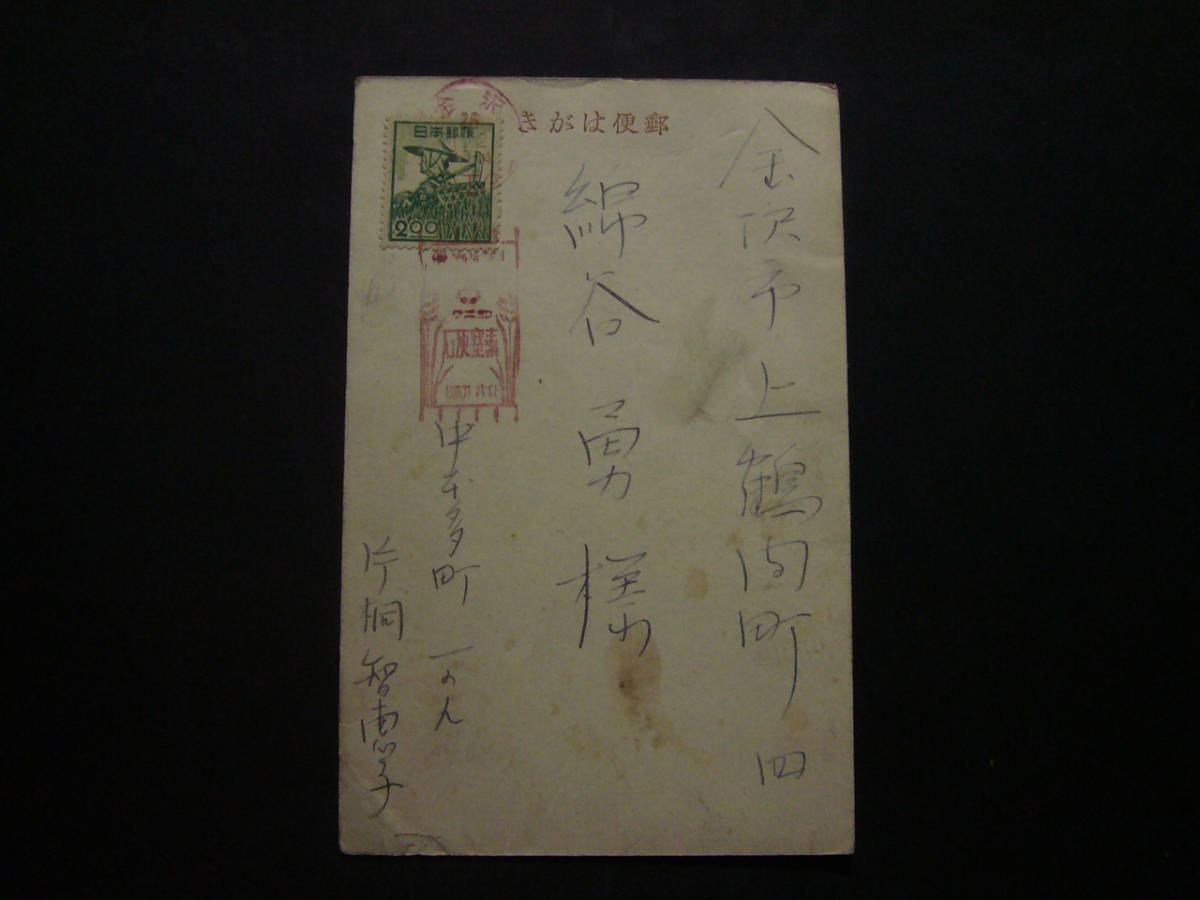 郵便はがき
金沢市上鶴間町四
綿谷勇様
中本多町一の八
片桐智恵子
日本郵便
2.00
金沢
26
硬窒素石